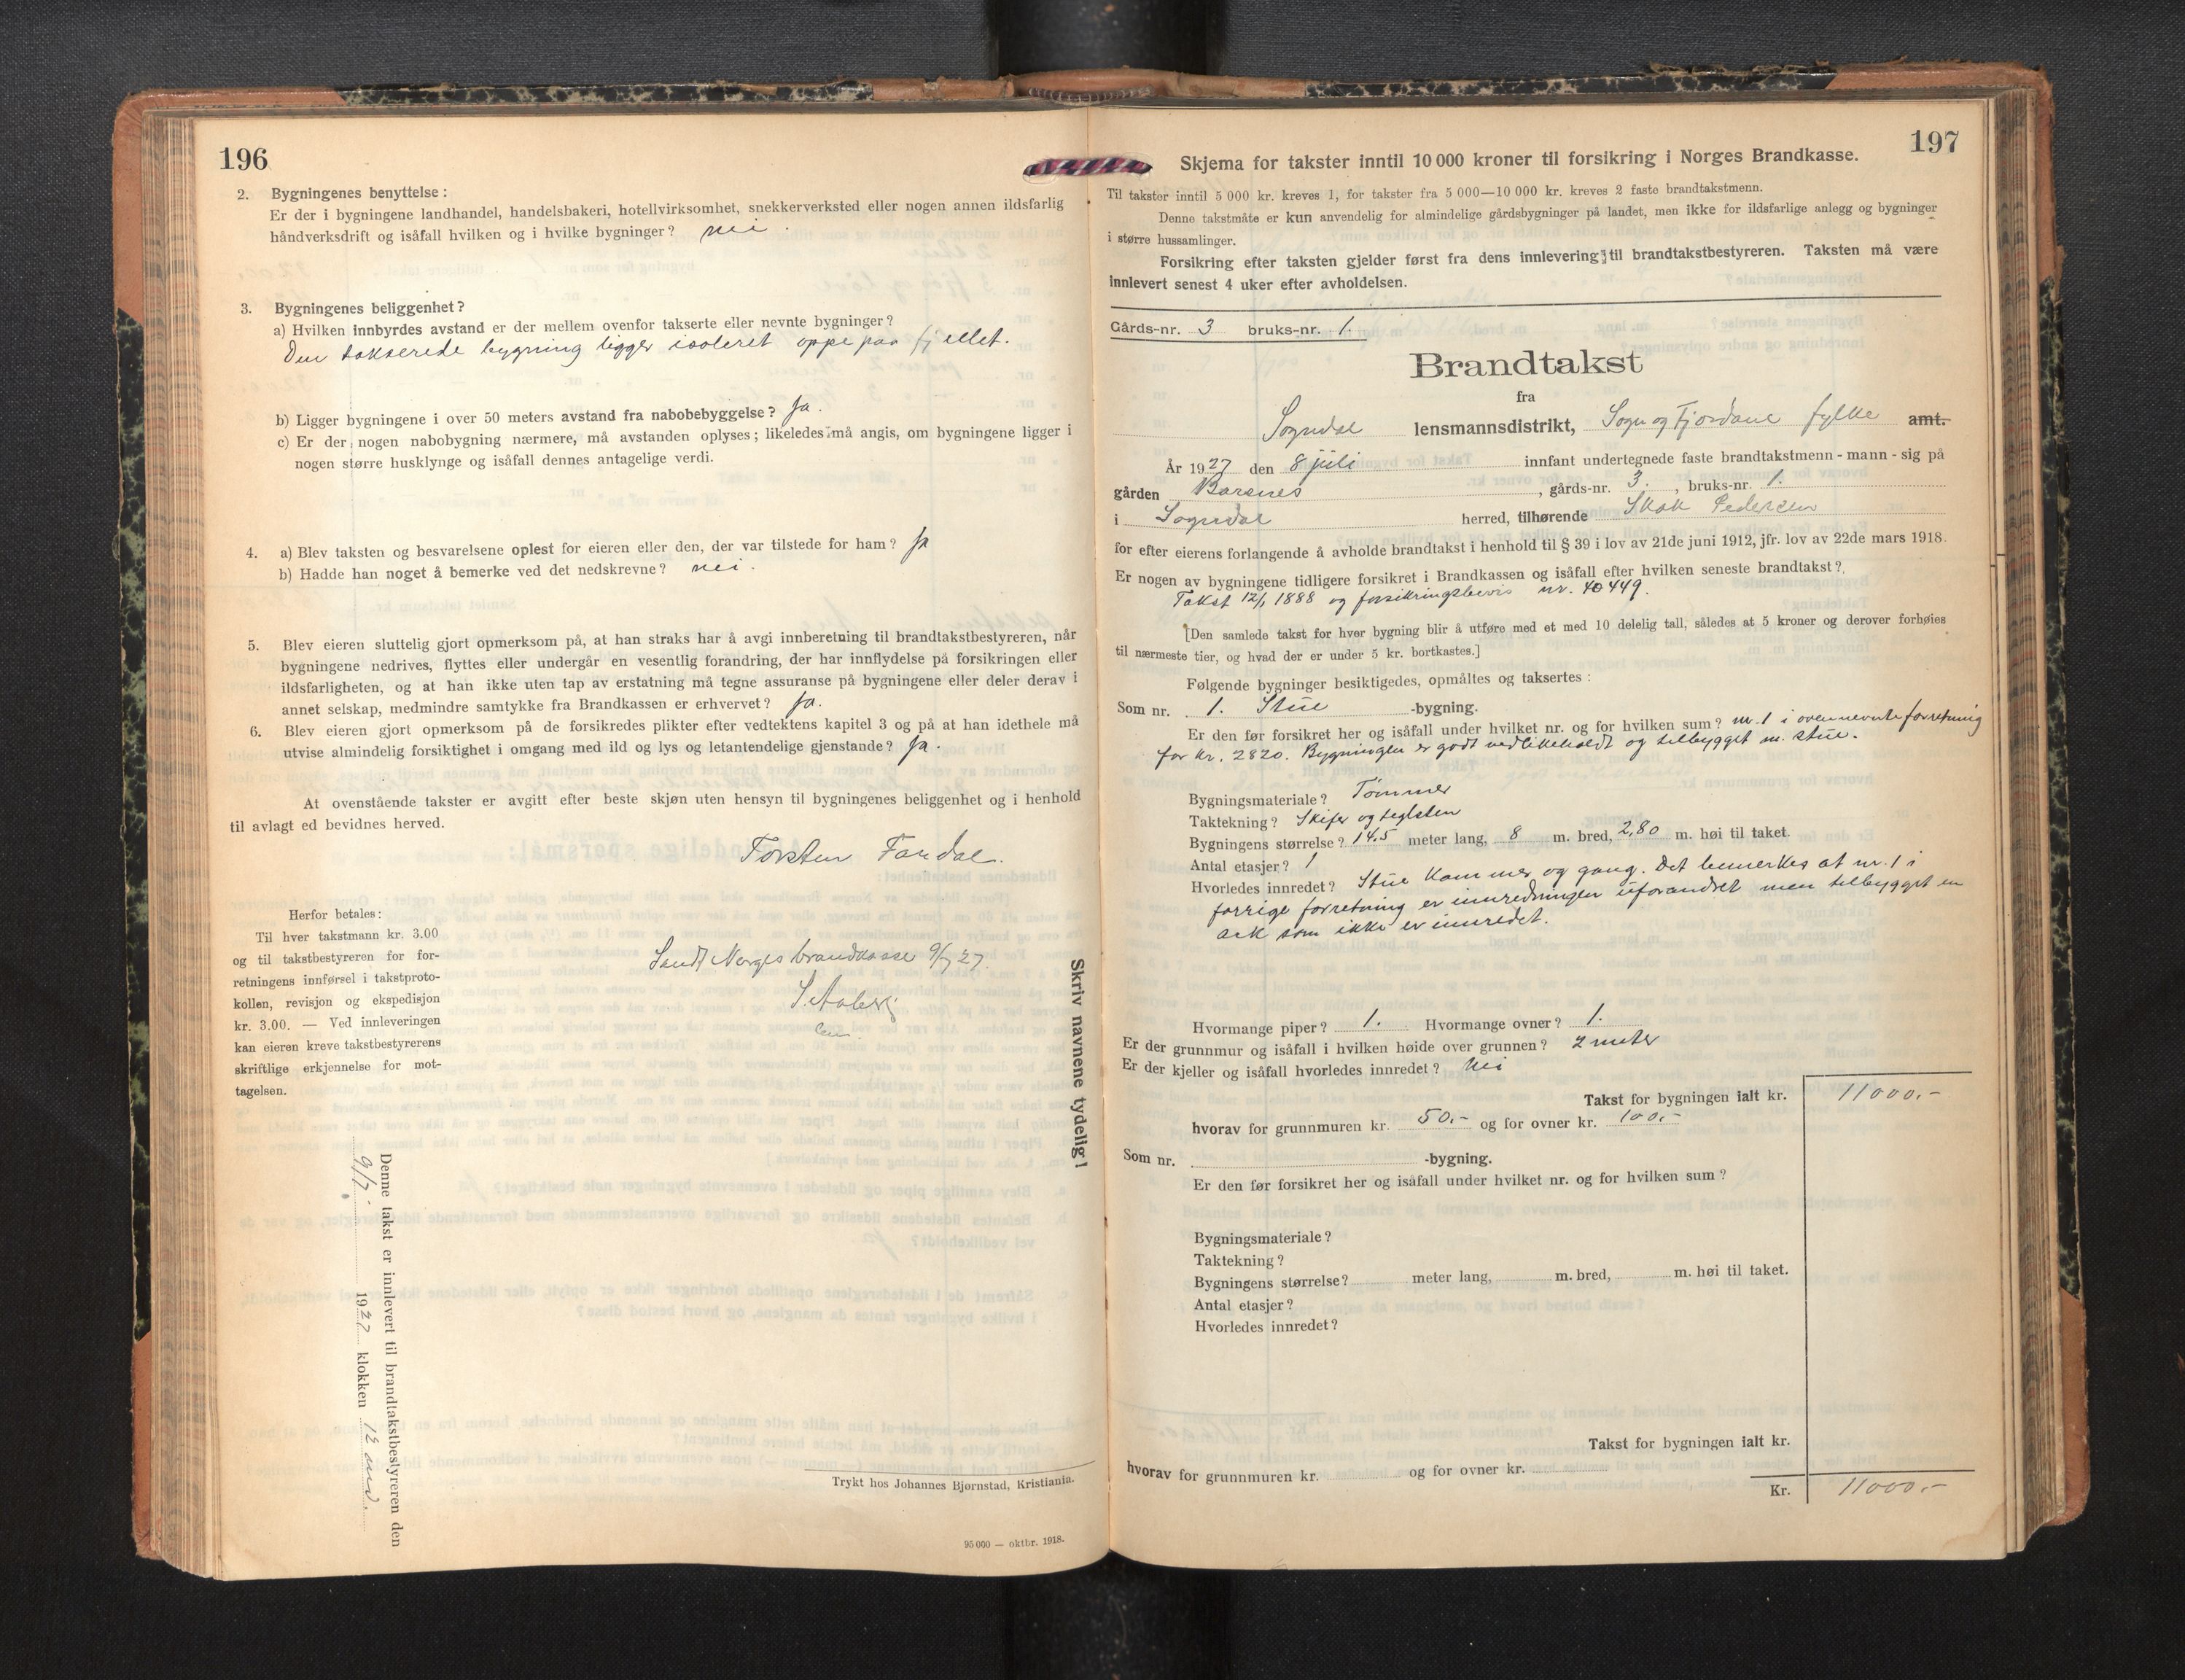 196
2. Bygningenes benyttelse:
Er der i bygningene landhandel, handelsbakeri, hotellvirksomhet, snekkerverksted eller nogen annen ildsfarlig
håndverksdrift og isåfall hvilken og i hvilke bygninger? nei.
3. Bygningenes beliggenhet?
a) Hvilken innbyrdes avstand er der mellem ovenfor takserte eller nevnte bygninger?
Den takserede bygning ligger isoleret oppe paa fjellet.
b) Ligger bygningene i over 50 meters avstand fra nabobebyggelse? Ja.
c) Er der nogen nabobygning nærmere, må avstanden oplyses; likeledes må angis, om bygningene ligger i
nogen større husklynge og isåfall dennes antagelige verdi.
4. a) Blev taksten og besvarelsene oplest for eieren eller den, der var tilstede for ham? Ja
b) Hadde han noget å bemerke ved det nedskrevne? nei.
5. Blev eieren sluttelig gjort opmerksom på, at han straks har å avgi innberetning til brandtakstbestyreren, når
bygningene nedrives, flyttes eller undergår en vesentlig forandring, der har innflydelse på forsikringen eller
ildsfarligheten, og at han ikke uten tap av erstatning må tegne assuranse på bygningene eller deler derav i
annet selskap, medmindre samtykke fra Brandkassen er erhvervet? Ja.
6. Blev eieren gjort opmerksom på de forsikredes plikter efter vedtektens kapitel 3 og på at han idethele må
utvise almindelig forsiktighet i omgang med ild og lys og letantendelige gjenstande? Ja.
At ovenstående takster er avgitt efter beste skjøn uten hensyn til bygningenes beliggenhet og i henhold
til avlagt ed bevidnes herved.
Torsten Fardal.
Herfor betales:
Til hver takstmann kr. 3.00
og til takstbestyreren for for-
retningens innførsel i takstproto-
kollen, revisjon og ekspedisjon
kr. 3.00. — Ved innleveringen
kan eieren kreve takstbestyrerens
skriftlige erkjennelse for mot-
tagelsen.
Sendt Norges brandkasse 9/7 27.
Skriv navnene tydelig!
Denne takst er innlevert til brandtakstbestyreren den
9/7. 1927 klokken 12 md.
Trykt hos Johannes Bjørnstad, Kristiania.
95 000 — oktbr. 1918.
197
Skjema for takster inntil 10 000 kroner til forsikring i Norges Brandkasse.
Til takster inntil 5 000 kr. kreves 1, for takster fra 5 000—10 000 kr. kreves 2 faste brandtakstmenn.
Denne takstmåte er kun anvendelig for almindelige gårdsbygninger på landet, men ikke for ildsfarlige anlegg og bygninger
i større hussamlinger.
Forsikring efter taksten gjelder først fra dens innlevering til brandtakstbestyreren. Taksten må være
innlevert senest 4 uker efter avholdelsen.
Gårds-nr. 3 bruks-nr. 1.
Brandtakst
fra
Sogndal lensmannsdistrikt, Sogn og Fjordane fylke amt.
År 1927 den 8 juli innfant undertegnede faste brandtakstmenn - mann - sig på
gården Barsnes, gårds-nr. 3., bruks-nr. 1.
i Sogndal herred, tilhørende Skak Pedersen
for efter eierens forlangende å avholde brandtakst i henhold til § 39 i lov av 21de juni 1912, jfr. lov av 22de mars 1918.
Er nogen av bygningene tidligere forsikret i Brandkassen og isåfall efter hvilken seneste brandtakst?
Takst 12/1 1888 og forsikringsbevis nr. 40449.
[Den samlede takst for hver bygning blir å utføre med et med 10 delelig tall, således at 5 kroner og derover forhøies
til nærmeste tier, og hvad der er under 5 kr. bortkastes.]
Følgende bygninger besiktigedes, opmåltes og taksertes:
Som nr. 1. Stue -bygning.
Er den før forsikret her og isåfall under hvilket nr. og for hvilken sum? nr. 1 i ovennevnte forretning
for kr. 2820. Bygningen er godt vedlikeholdt og tilbygget m. stue.
Bygningsmateriale? Tømmer
Taktekning? Skifer og teglsten
Bygningens størrelse? 14.5 meter lang, 8 m. bred, 2,80 m. høi til taket.
Antal etasjer? 1
Hvorledes innredet? Stue Kammer og gang. Det bemerkes at nr. 1 i
forrige forretning er innredningen uforandret men tilbygget en
ark som ikke er innredet.
Hvormange piper? 1. Hvormange ovner? 1.
Er der grunnmur og isåfall i hvilken høide over grunnen? 2 meter
Er der kjeller og isåfall hvorledes innredet? Nei
Takst for bygningen ialt kr. 11000.-
hvorav for grunnmuren kr. 50.- og for ovner kr. 100.-
Som nr. -bygning.
Er den før forsikret her og isåfall under hvilket nr. og for hvilken sum?
Bygningsmateriale?
Taktekning?
Bygningens størrelse? meter lang, m. bred, m. høi til taket.
Antal etasjer?
Hvorledes innredet?
Takst for bygningen ialt kr.
hvorav for grunnmuren kr. og for ovner kr.
Kr. 11000.-